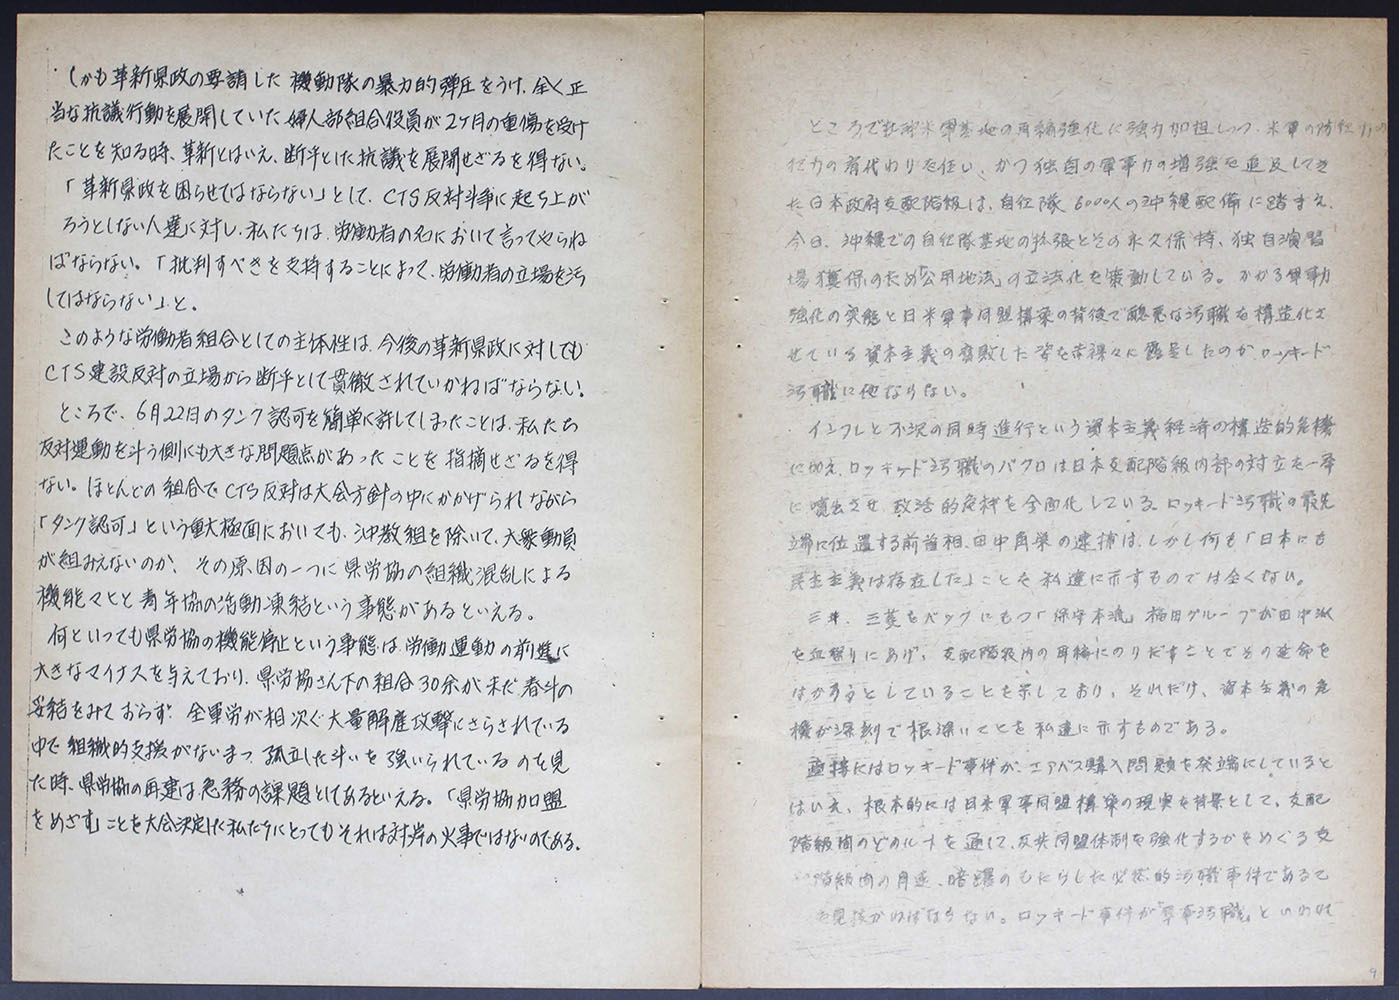 しかも革新県政の要請した機動隊の暴力的弾圧をうけ、全く正
当な抗議行動を展開していた婦人部組合役員が2ケ月の重傷を受け
たことを知る時、革新とはいえ、断乎とした抗議を展開せざるを得ない。
「革新県政を困らせてはならない」として、CTS反対斗争に起ち上が
ろうとしない人達に対し、私たちは、労働者の名において言ってやらね
ばならない。「批判すべきを支持することによって、労働者の立場を汚
してはならない」と。
このような労働者組合としての主体性は、今後の革新県政に対しても
CTS建設反対の立場から断乎として貫徹されていかねばならない。
ところで、6月22日のタンク認可を簡単に許してしまったことは、私たち
反対運動を斗う側にも大きな問題点があったことを指摘せざるを得
ない。ほとんどの組合でCTS反対は大会方針の中にかかげられながら
「タンク認可」という重大極面においても、沖教組を除いて、大衆動員
が組みえないのか、その原因の一つに県労協の組織混乱による
機能マヒと青年協の活動凍結という事態があるといえる。
何といっても県労協の機能停止という事態は、労働運動の前進に
大きなマイナスを与えており、県労協さん下の組合30余が未だ春斗の
妥結をみておらず、全軍労が相次ぐ大量解雇攻撃にさらされている
中で組織的支援がないまゝ孤立した斗いを強いられているのを見
た時、県労協の再建は急務の課題としてあるといえる。「県労協加盟
をめざす」ことを大会決定した私たちにとってもそれは対岸の火事ではないのである。
ところで在沖米軍基地の再編強化に強力加担しつつ、米軍の防
任力の肩代わりを任い、かつ独自の軍事力の増強を追及してき
た日本政府支配階級は、自任隊6000人の沖縄配備に踏まえ、
今日、沖縄での自任隊基地の拡張とその永久保持、独自演習
場獲保のため「公用地法」の立法化を策動している。かかる軍事力
強化の実態と日米軍事同盟構築の背後で醜悪な汚職を構造化さ
せている資本主義の腐敗した姿を赤裸々に露呈したのがロッキード
汚職に他ならない。
インフレと不況の同時進行という資本主義経済の構造的危機
に加え、ロッキード汚職のバクロは日本支配階級内部の対立を一挙
に噴出させ、政治的危機を全面化している。ロッキード汚職の最先
端に位置する前首相、田中角栄の逮捕は、しかし何も「日本にも
民主主義は存在した」ことを私達に示すものでは全くない。
三井、三菱をバックにもつ「保守本流」福田グループが田中派
を血祭りにあげ、支配階級内の再編にのりだすことでその延命を
はかろうとしていることを示しており、それだけ、資本主義の危
機が深刻で根深いことを私達に示すものである。
直接にはロッキード事件が、エアバス購入問題を発端にしていると
はいえ、根本的には日米軍事同盟構築の現実を背景として、支配
階級間のどのルートを通じて、反共同盟体制を強化するかをめぐる支
階級間の角逐、暗躍のもたらした必然的汚職事件であるて
を見抜かねばならない。ロッキード事件が「軍事汚職」といわれ
9